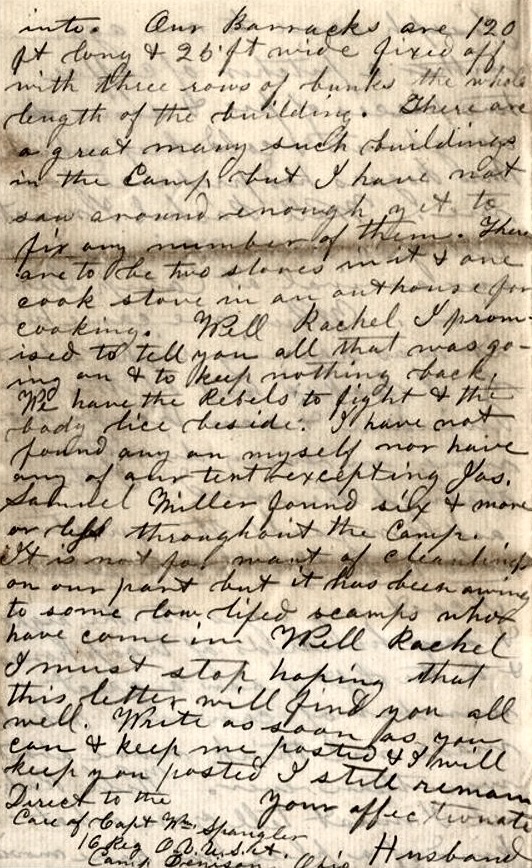 into. Our Barracks are 120
ft long & 25 ft wide fixed off
with three rows of bunks the whole
length of the building. There are
a great many such buildings
in the Camp but I have not
saw around enough yet to
fix any number of them. There
are to be two stoves in it & one
cook stove in an outhouse for
cooking. Well Rachel I prom-
ised to tell you all that was go-
ing on & to keep nothing back,
We have the Rebels to fight & the
body lice beside. I have not
found any on myself nor have
any of our tent excepting Jas.
Samuel Miller found six & more
or less throughout the Camp.
It is not for want of cleanliness
on our part but it has been owing
to some low lifed scamps who
have come in Well Rachel
I must stop hoping that
this letter will find you all
well. Write as soon as you
can & keep me posted & I will
keep you posted I still remain
your affectionate
Husband
Direct to the
Care of Capt Wm. Spangler
16 Reg O.V.U.S.A.
Camp Dennison, Ohio